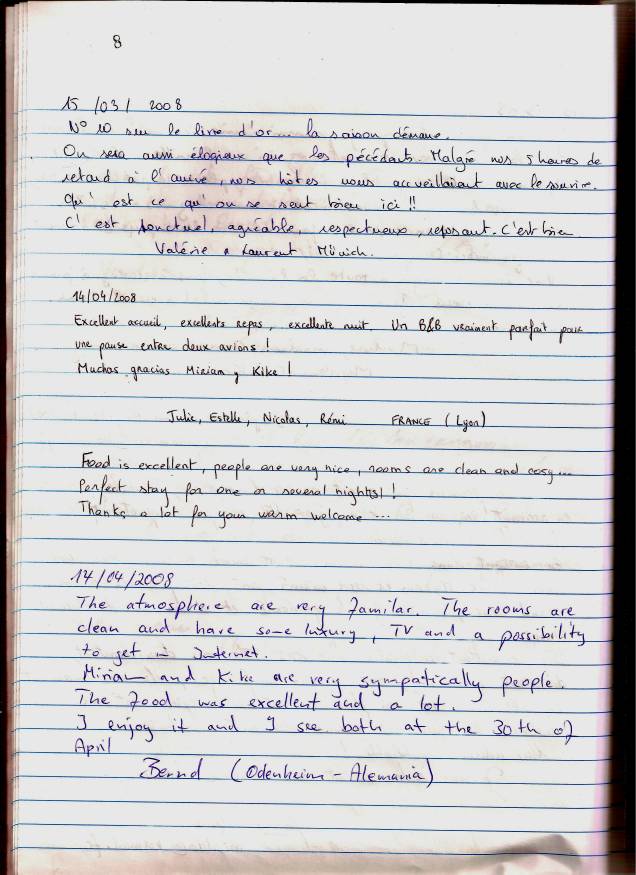 8
15/03/2008
N° 10 sur le livre d'or... la saison démarre.
On sera aussi élogieux que les pécédants. Malgré nos 5 heures de
retard à l'arrivé, nos hôtes nous accueillaient avec le sourire.
Qu'est ce qu'on se sent bien ici !!
C'est ponctuel, agréable, respectueux, reposant. C'est bien
Valérie & Laurent Münich.
14/04/2008
Excellent accueil, excellents repas, excellente nuit. Un B&B vraiment parfait pour
une pause entre deux avions !
Muchas gracias Miriam y Kike !
Julie, Estelle, Nicolas, Rémi FRANCE (Lyon)
Food is excellent, people are very nice, rooms are clean and cosy...
Perfect stay for one or several nights !
Thanks a lot for your warm welcome ...
14/04/2008
The atmosphere are very familar. The rooms are
clean and have some luxury, TV and a possibility
to get in Internet.
Miriam and Kike are very sympatically people.
The food was excellent and a lot.
I enjoy it and I see both at the 30th of
April
Bernd (Odenheim - Alemania)